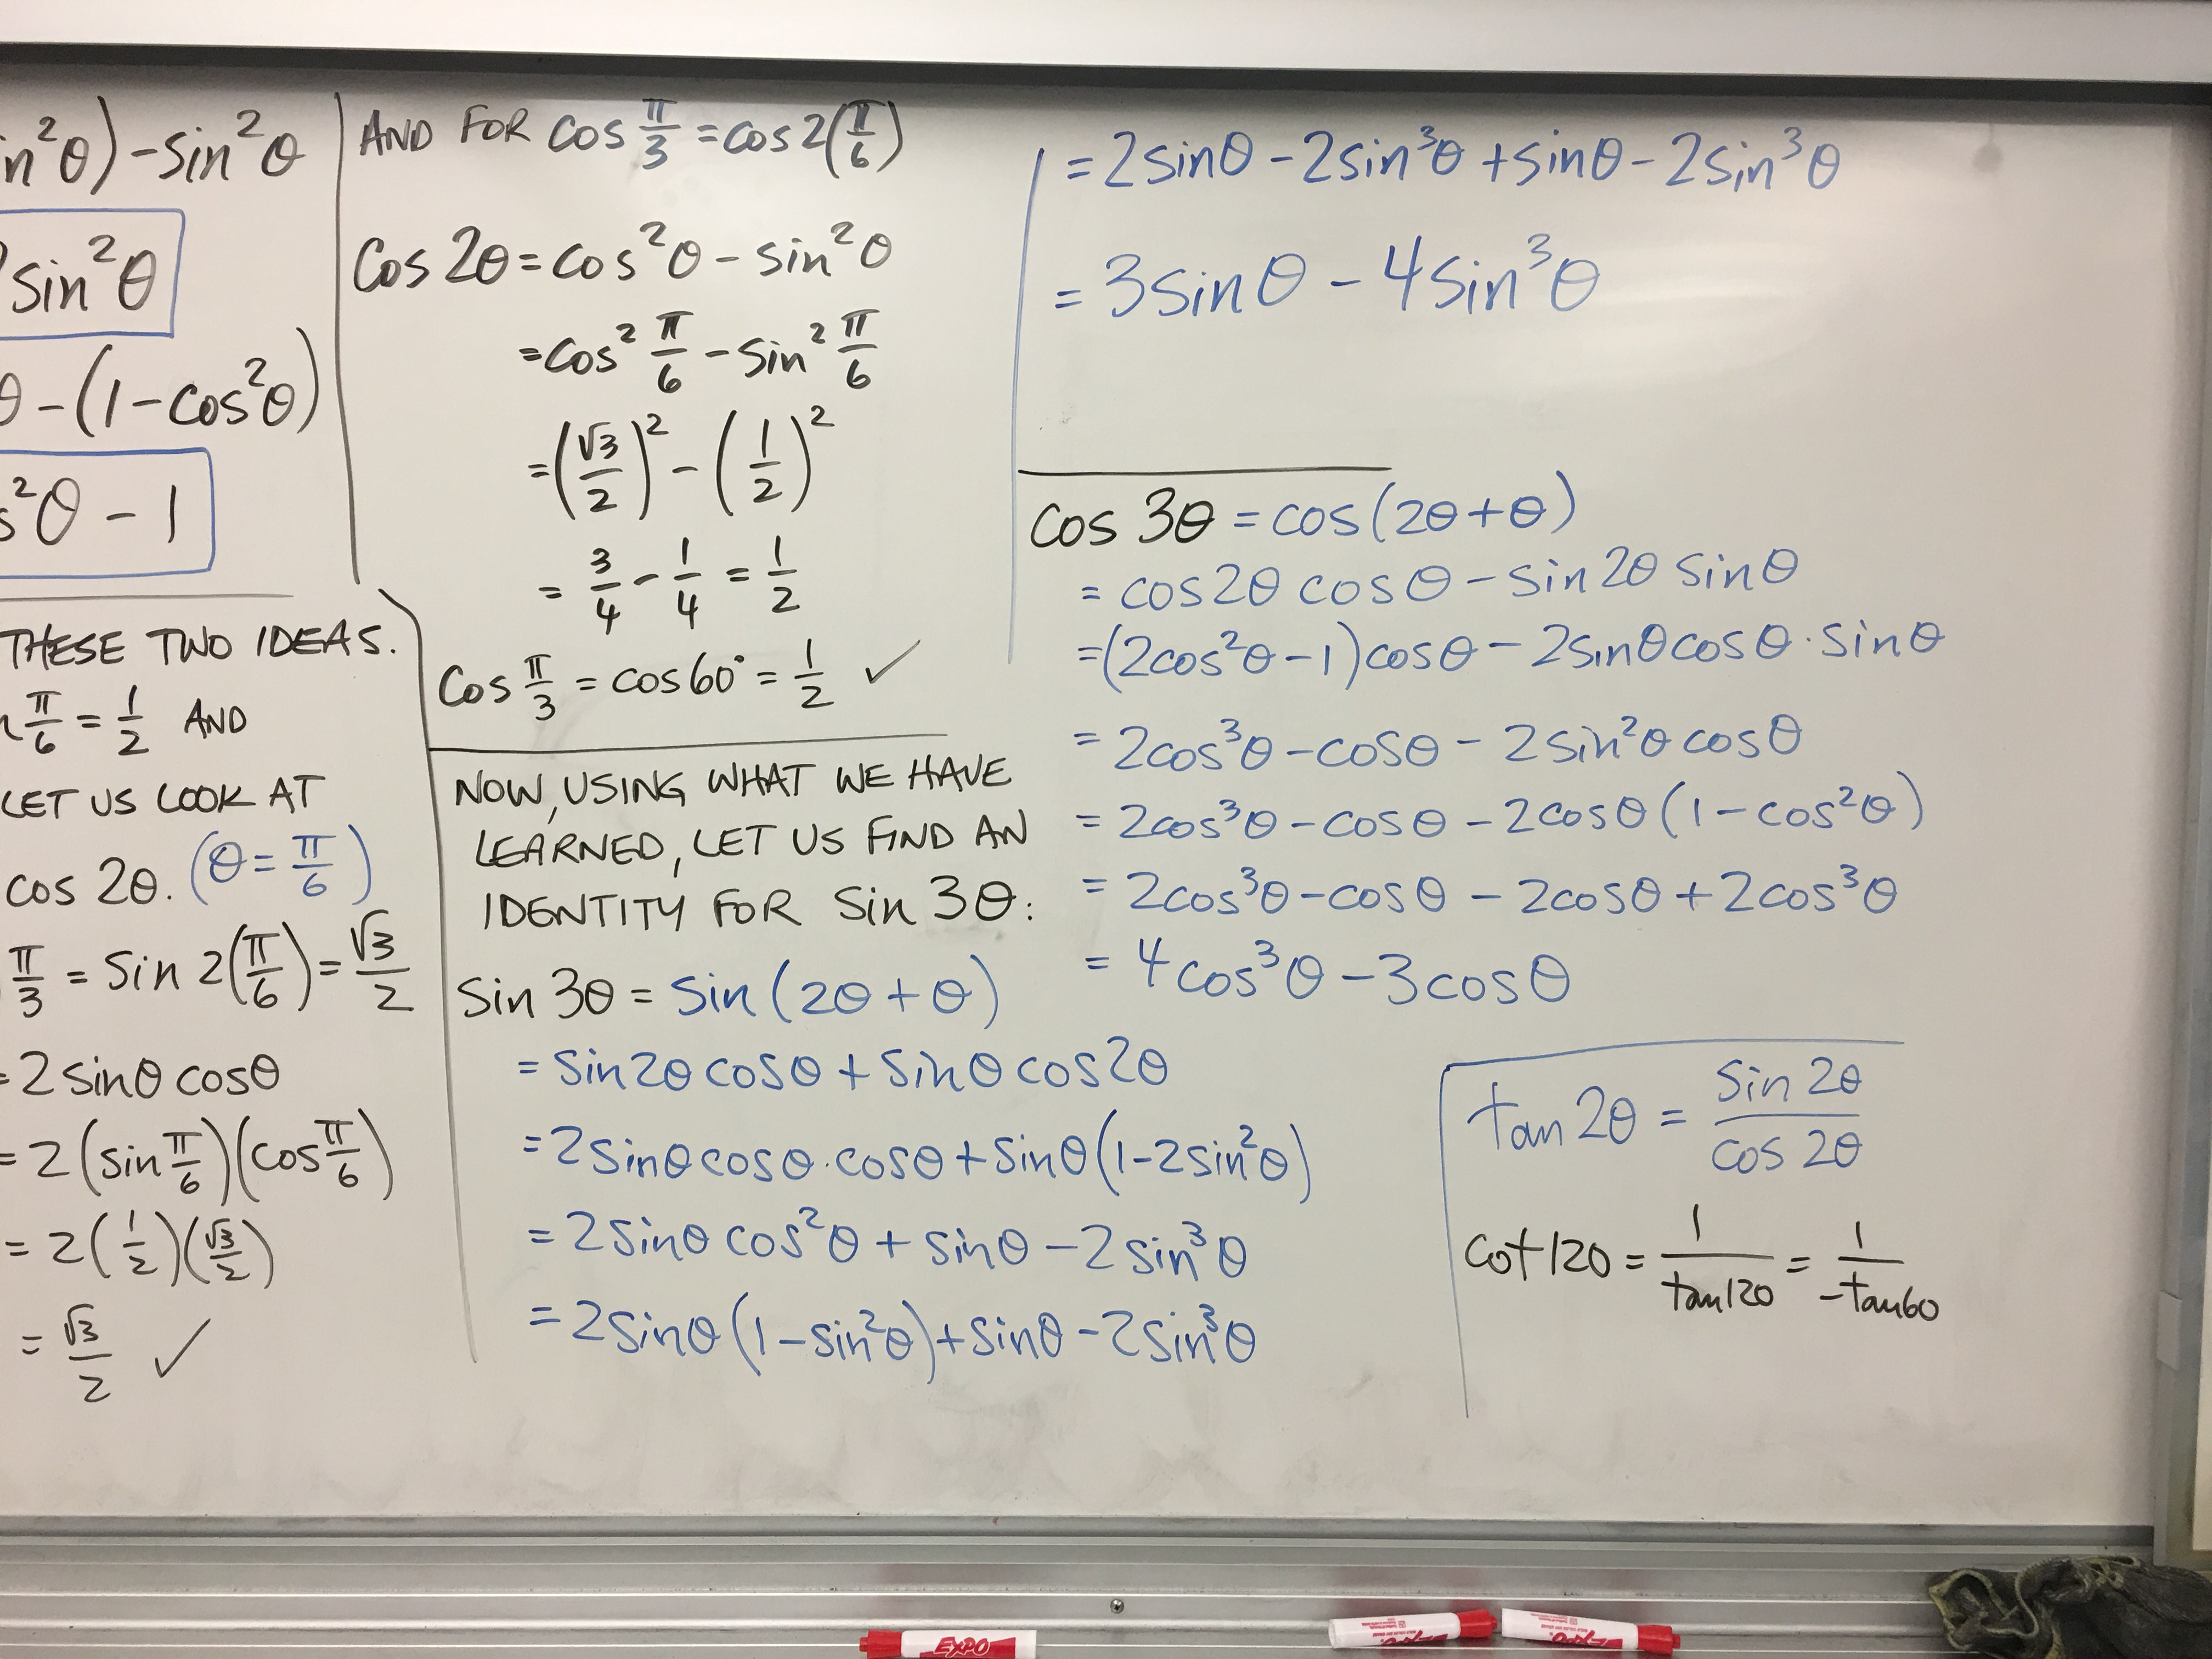 in²θ) - sin²θ
sin²θ
θ - (1 - cos²θ)
s²θ - 1
THESE TWO IDEAS.
π/6 = 1/2 AND
LET US LOOK AT
cos 2θ. (θ = π/6)
π/3 = sin 2(π/6) = √3/2
= 2 sinθ cosθ
= 2 (sin π/6)(cos π/6)
= 2 (1/2)(√3/2)
= √3/2 ✓
AND FOR cos π/3 = cos 2(π/6)
cos 2θ = cos²θ - sin²θ
= cos² π/6 - sin² π/6
= (√3/2)² - (1/2)²
= 3/4 - 1/4 = 1/2
cos π/3 = cos 60° = 1/2 ✓
NOW, USING WHAT WE HAVE
LEARNED, LET US FIND AN
IDENTITY FOR sin 3θ:
sin 3θ = sin (2θ + θ)
= sin2θ cosθ + sinθ cos2θ
= 2sinθcosθ·cosθ + sinθ(1 - 2sin²θ)
= 2sinθ cos²θ + sinθ - 2sin³θ
= 2sinθ(1 - sin²θ) + sinθ - 2sin³θ
= 2sinθ - 2sin³θ + sinθ - 2sin³θ
= 3sinθ - 4sin³θ
cos 3θ = cos(2θ + θ)
= cos2θ cosθ - sin2θ sinθ
= (2cos²θ - 1)cosθ - 2sinθcosθ·sinθ
= 2cos³θ - cosθ - 2sin²θ cosθ
= 2cos³θ - cosθ - 2cosθ(1 - cos²θ)
= 2cos³θ - cosθ - 2cosθ + 2cos³θ
= 4cos³θ - 3cosθ
tan 2θ = sin 2θ/cos 2θ
cot 120 = 1/tan120 = 1/-tan60
EXPO